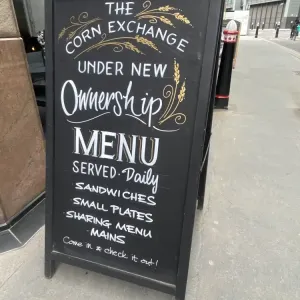 THE
CORN EXCHANGE
UNDER NEW
Ownership
MENU
SERVED • Daily
SANDWICHES
SMALL PLATES
SHARING MENU
• MAINS
Come in & check it out!